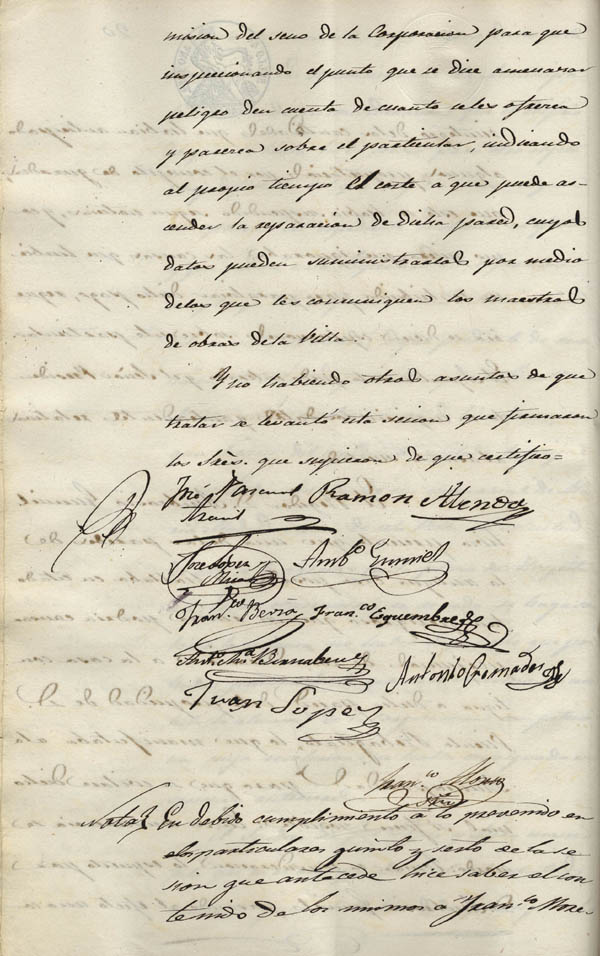 mision del seno de la Corporacion para que
inspeccionando el punto que se dice amenazar
peligro den cuenta de cuanto seles ofrezca
y parezca sobre el particular, indicando
al propio tiempo el coste á que puede as-
cender la reparacion de dicha pared, cuyos
datos pueden suministrarlos por medio
delos que les comuniquen los maestros
de obras dela Villa.
Y no habiendo otros asuntos de que
tratar se levantó esta sesion que firmaron
los Sres. que supieron de que certifico=
Ramon Alenda
Jose Lopez
Amb.º
Fran.co Fran.co Esquembre
Ant.º Bernabeu
Antonio Cremades
Juan Lopez
Fran.co
Srio
Nota) En debido cumplimiento a lo prevenido en
los particulares quinto y sesto de la se
sion que antecede hice saber el con
tenido de los mismos a Fran.co More-